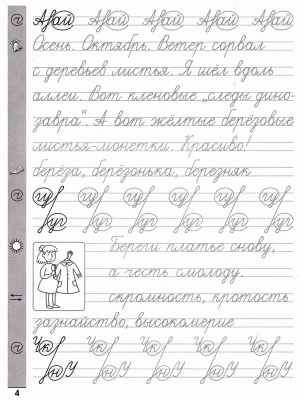 Авай Авай Авай Авай Авай
Осень. Октябрь. Ветер сорвал
с деревьев листья. Я шёл вдоль
аллеи. Вот кленовые „следы дино-
завра“. А вот жёлтые берёзовые
листья-монетки. Красиво!
берёза, берёзонька, березняк
гу гу гу гу гу гу
уг уг уг уг уг уг
Береги платье снову,
а честь смолоду.
скромность, кротость
зазнайство, высокомерие
Чк Чк Чк Чк Чк
нУ нУ нУ нУ нУ
4